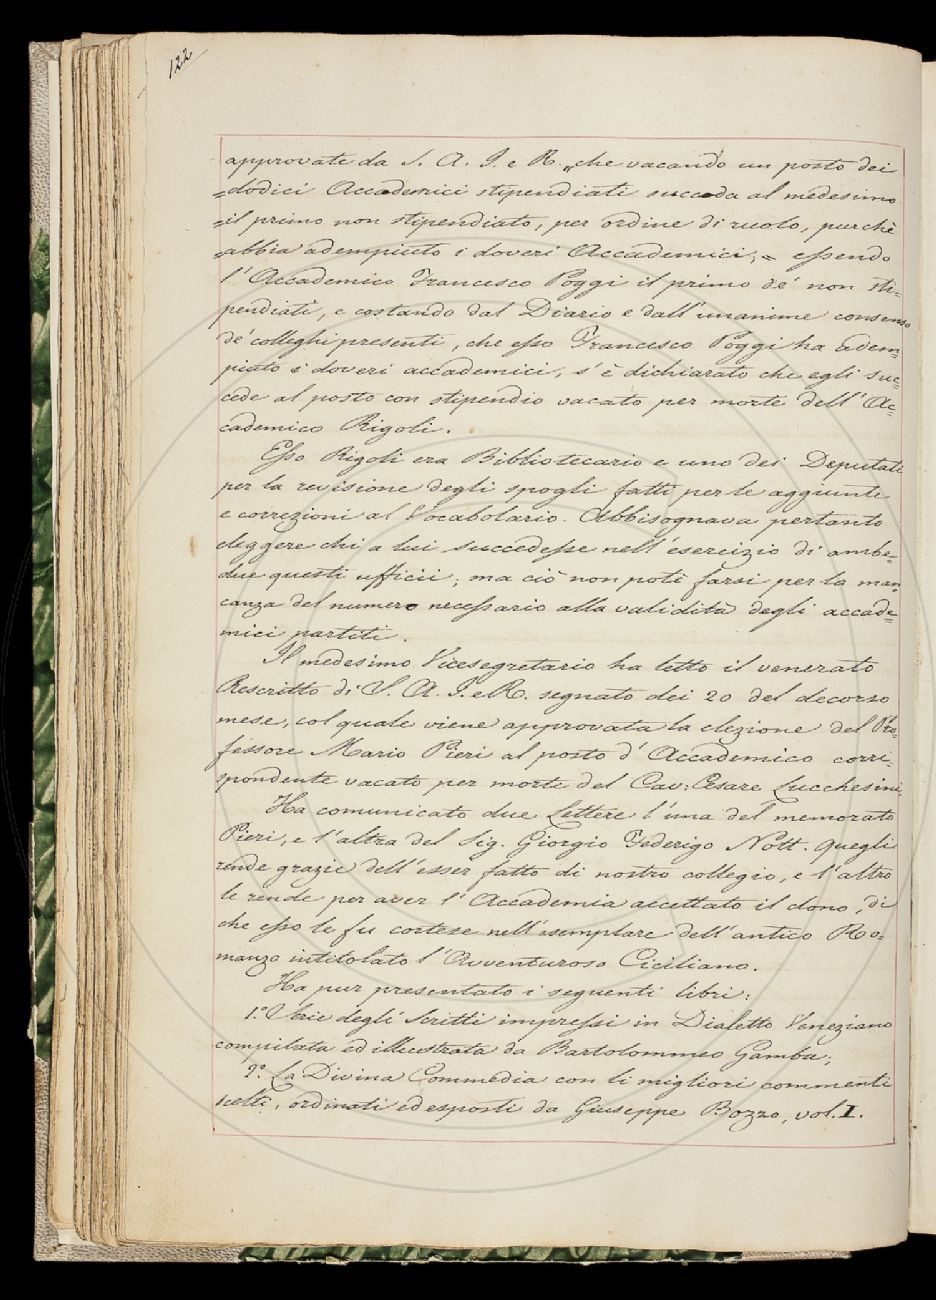 122
approvate da S. A. I. e R. „che vacando un posto dei
=dodici Accademici stipendiati succeda al medesimo
=il primo non stipendiato, per ordine di ruolo, purchè
=abbia adempiuto i doveri Accademici;= essendo
l'Accademico Francesco Poggi il primo de' non sti=
pendiati, e costando dal Diario e dall'unanime consenso
de' colleghi presenti, che esso Francesco Poggi ha adem=
piuto i doveri accademici, s'è dichiarato che egli suc=
cede al posto con stipendio vacato per morte dell'Ac=
cademico Rigoli.
Esso Rigoli era Bibliotecario e uno dei Deputati
per la revisione degli spogli fatti per le aggiunte
e correzioni al Vocabolario. Abbisognava pertanto
eleggere chi a lui succedesse nell'esercizio di ambe=
due questi ufficii; ma ciò non potè farsi per la man=
canza del numero necessario alla validità degli accade=
mici partiti.
Il medesimo Vicesegretario ha letto il venerato
Rescritto di S. A. I. e R. segnato dei 20 del decorso
mese, col quale viene approvata la elezione del Pro=
fessore Mario Pieri al posto d'Accademico corri=
spondente vacato per morte del Cav: Cesare Lucchesini.
Ha comunicato due Lettere l'una del memorato
Pieri, e l'altra del Sig. Giorgio Federigo Nott. Quegli
rende grazie dell'esser fatto di nostro collegio, e l'altro
le rende per aver l'Accademia accettato il dono, di
che esso le fu cortese nell'esemplare dell'antico Ro=
manzo intitolato l'Avventuroso Ciciliano.
Ha pur presentato i seguenti libri:
1.° Serie degli Scritti impressi in Dialetto Veneziano
compilata ed illustrata da Bartolommeo Gamba;
2.° La Divina Commedia con li migliori commenti
scelti, ordinati ed esposti da Giuseppe Bozzo, vol. I.